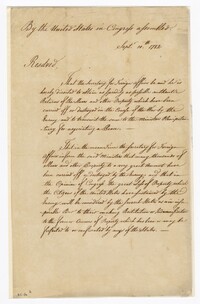 By the United States in Congress assembled
Sept. 10th 1782
Resolved,
That the Secretary for foreign Affairs be and he is
hereby directed to obtain as speedily as possible authentic
Returns of the Slaves and other Property which have been
carried off or destroyed in the Course of the War by the
Enemy, and to transmit the same to the Ministers Plenipoten
tiary for negotiating a Peace.
That in the mean time the Secretary for foreign
Affairs inform the said Ministers that many thousands of
Slaves and other Property to a very great Amount have
been carried off or destroyed by the Enemy; and that in
the Opinion of Congress the great Loss of Property which
the Citizens of the United States have sustained by the
Enemy will be considered by the several States as an insu
perable Bar to their making Restitution or Indemnification
to the former Owners of Property which has been or may be
forfeited to or confiscated by any of the States.